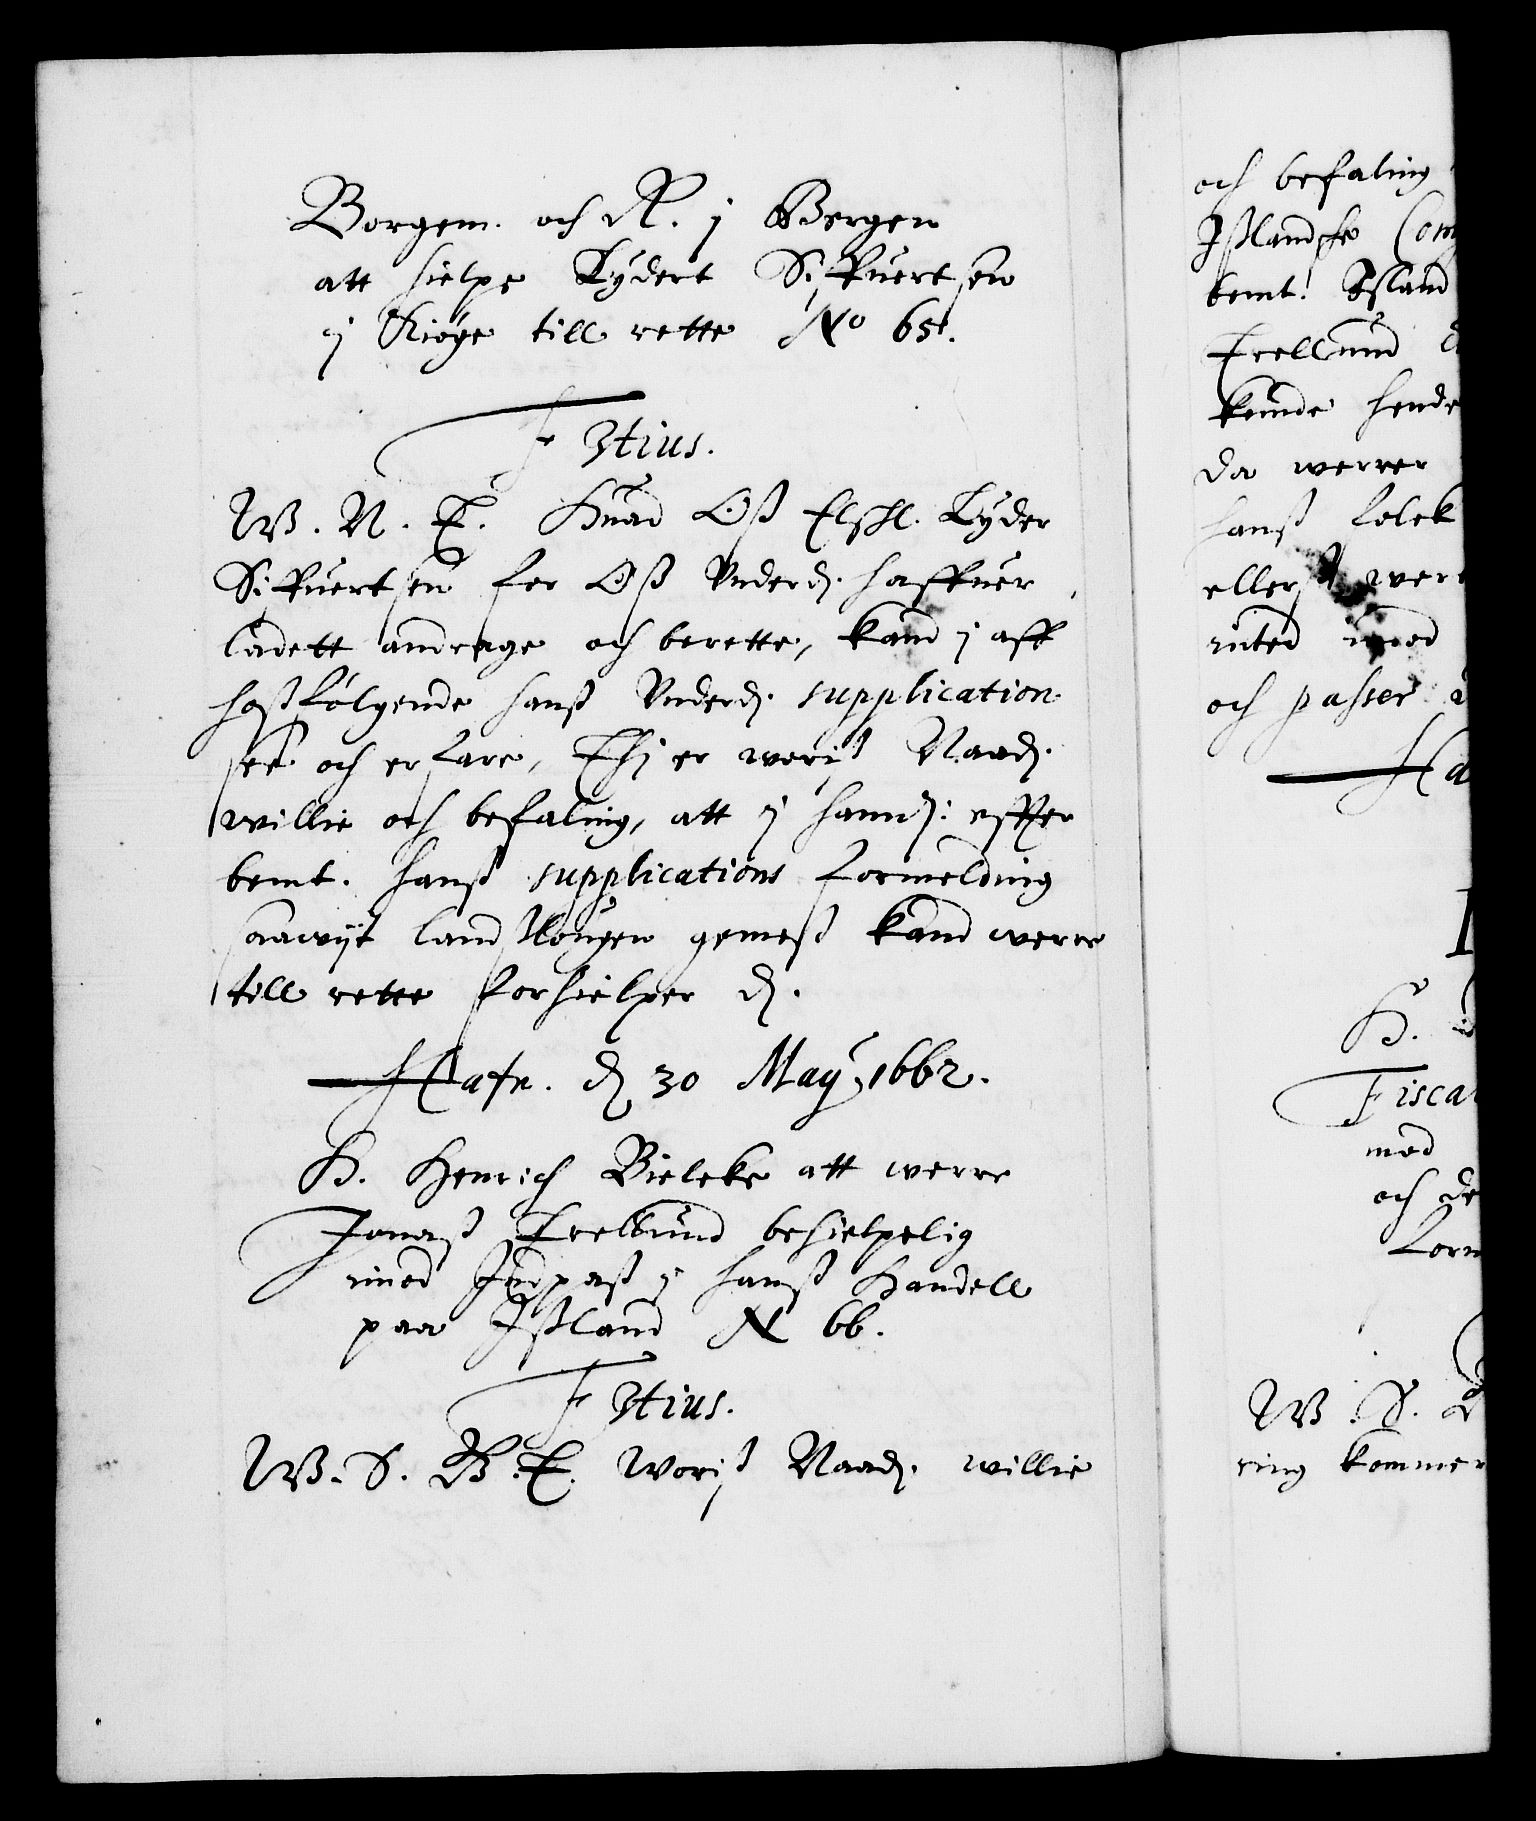 Borgem. och R. j Bergen
att hielpe Lydert Siffuertsen
j Kiøge till rette No 65.
F 3tius.
W. N. T. Huad Oß Elschl. Lyder
Siffuertsen for Oß Underd. haffuer
ladett andrage och berette, kand j aff
hoßfølgende hanß Underd. supplication
see och erfare, Thj er woriß Naad.
willie och befaling, att j hannd: effter
bemt. hanß supplications formelding
saawijt landßlougen gemeß kand werre
till rette forhielper d.
Hafn. d 30 Maÿ 1662.
H. Henrich Bielcke att werre
Jonaß Trellund behielpelig
mod Indpaß j hanß Handell
paa Ißland N 66.
F 3tius.
W. S. B. T. Woriß Naad. willie
och befaling
Ißlandske Com
bemt. Ißland
Trellund
kunde hende
da werrer
hanß folck
ellerß were
mod
och passer
Ha
H.
Fisca
mod
och de
form
W. S.
ring kommer